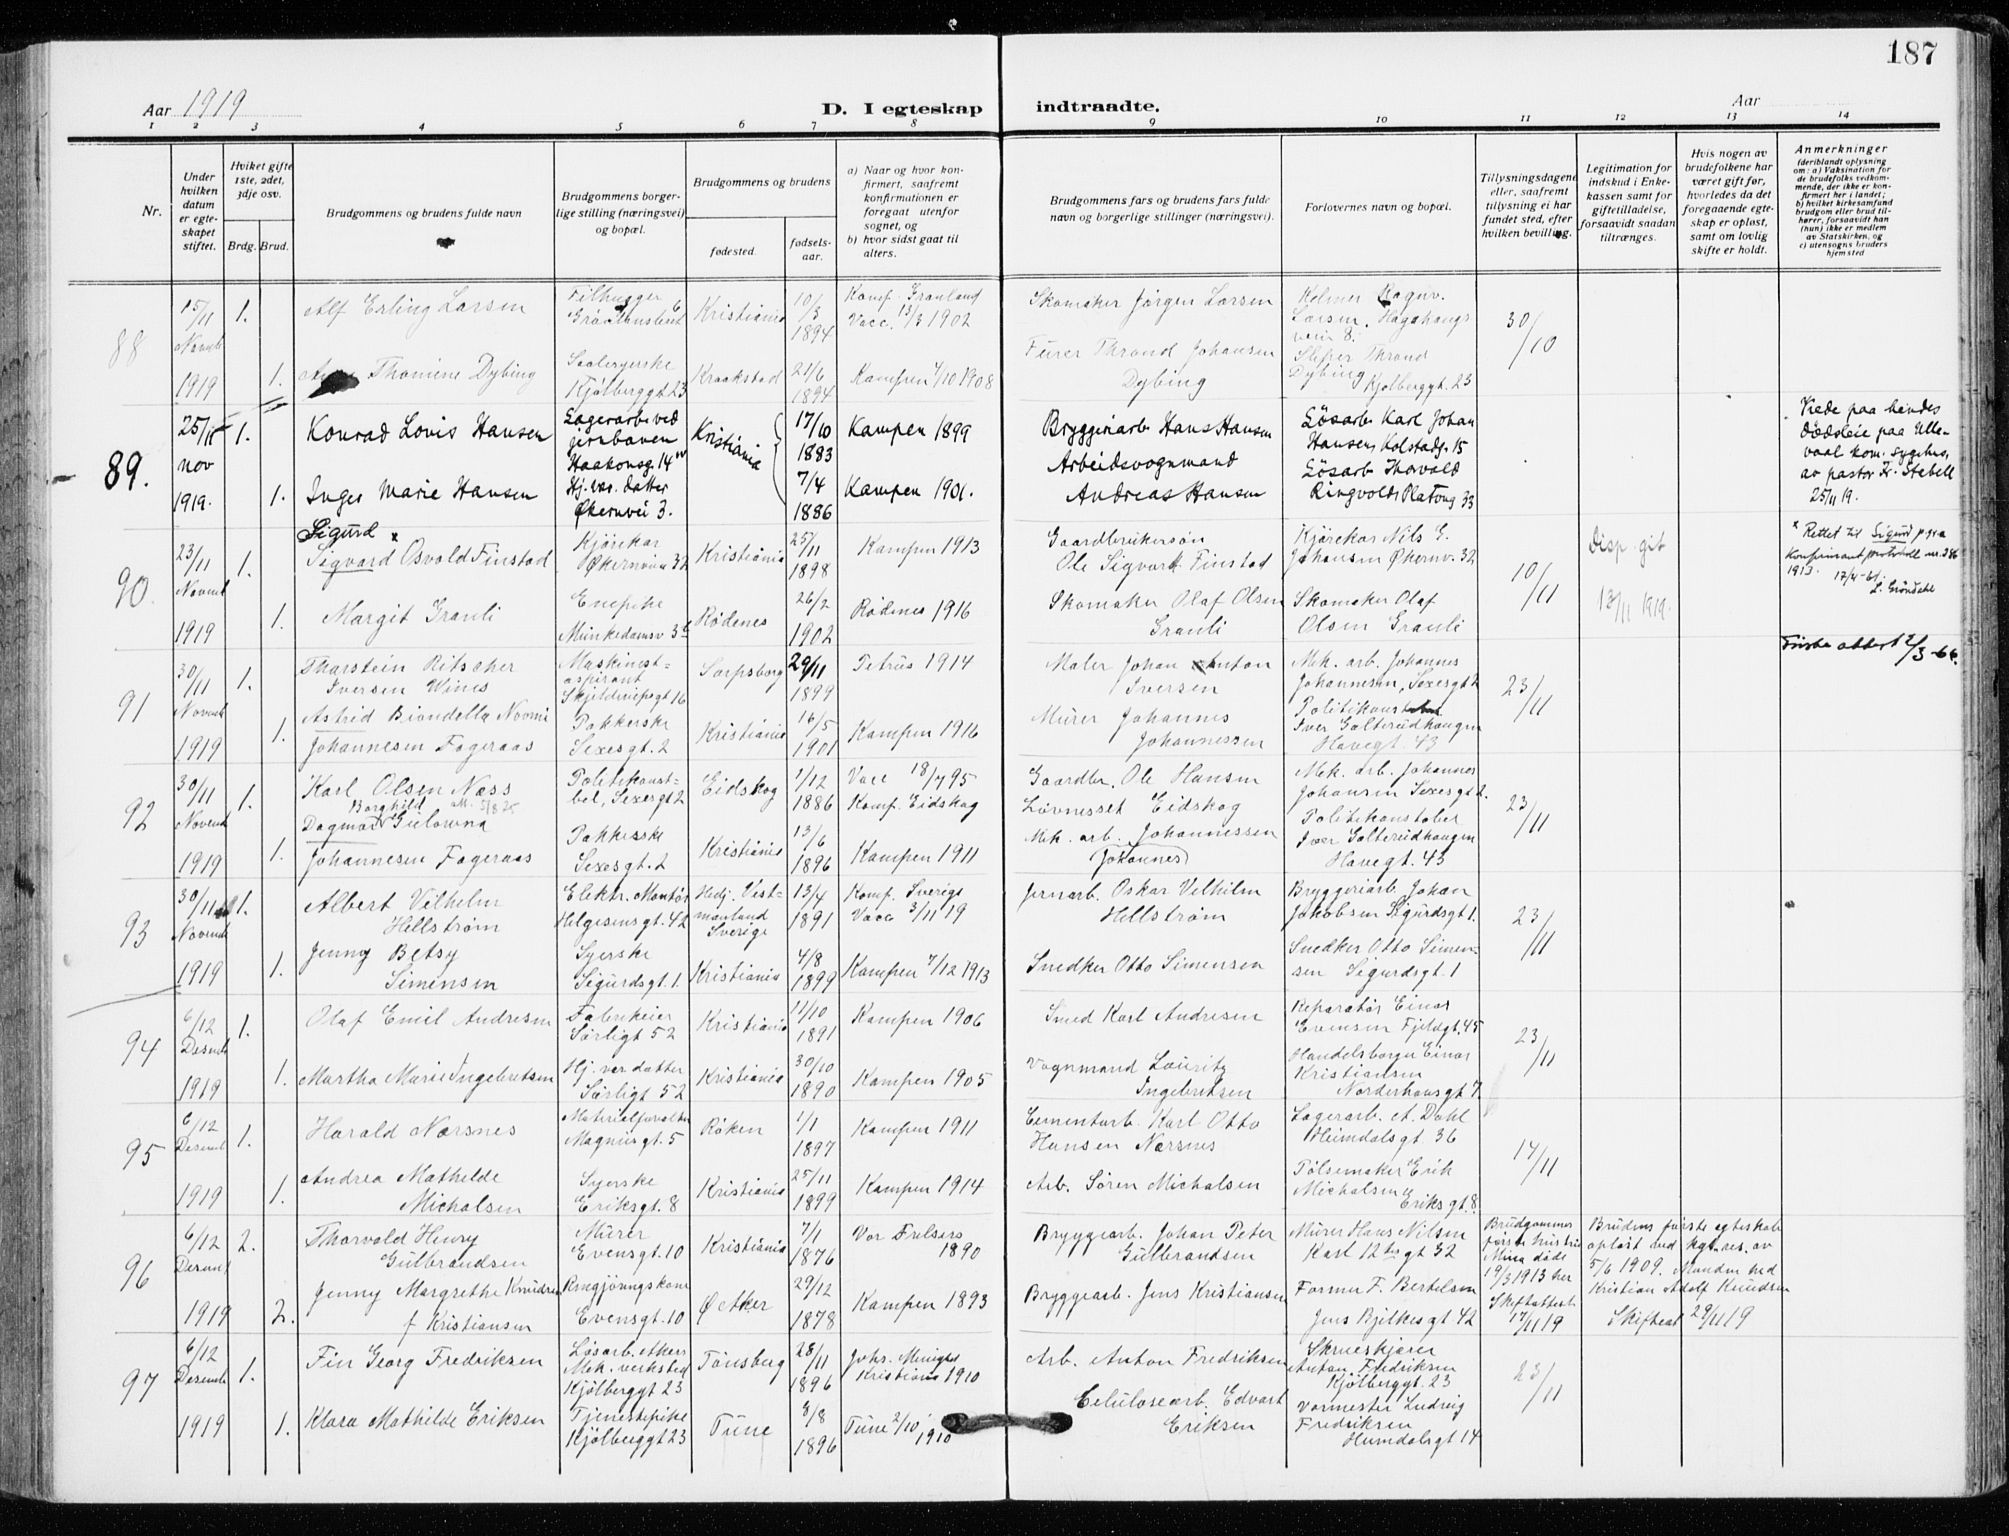 187
Aar 1919
D. I egteskap indtraadte.
Aar
1 2 3 4 5 6 7 8 9 10 11 12 13 14
Nr.
Under
hvilken
datum
er egte-
skapet
stiftet.
Hviket gifte
1ste, 2det,
3dje osv.
Brdg. Brud.
Brudgommens og brudens fulde navn
Brudgommens borger-
lige stilling (næringsvei)
og bopæl.
Brudgommens og brudens
fødested.
fødsels-
aar.
a) Naar og hvor kon-
firmert, saafremt
konfirmationen er
foregaat utenfor
sognet, og
b) hvor sidst gaat til
alters.
Brudgommens fars og brudens fars fulde
navn og borgerlige stillinger (næringsvei).
Forlovernes navn og bopæl.
Tillysningsdagene
eller, saafremt
tillysning ei har
fundet sted, efter
hvilken bevilling.
Legitimation for
indskud i Enke-
kassen samt for
giftetilladelse,
forsaavidt saadan
tiltrænges.
Hvis nogen av
brudefolkene har
været gift før,
hvorledes da det
foregaaende egte-
skap er opløst,
samt om lovlig
skifte er holdt.
Anmerkninger
(deriblandt oplysning
om: a) Vaksination for
de brudefolks vedkom-
mende, der ikke er kon-
firmert her i landet;
b) hvilket kirkesamfund
brudgom eller brud til-
hører, forsaavidt han
(hun) ikke er medlem
av Statskirken, og
c) utensogns bruders
hjemsted
88
15/11
Novemb
1919
1.
Alf Erling Larsen
Filhugger
Kristiania
10/3
1894
Konf. Grønland
Vacc. 13/3 1902
Skomaker Jørgen Larsen
Larsen, Hagahougs
vein 8.
30/10
1.
Thomine Dybing
Kjølberggt 23
Kraakstad
21/6
1894
Kampen 4/10 1908
Furer Thrond Johansen
Dybing
Sliper Thrond
Dybing Kjølberggt. 23
89.
25/11
nov
1919.
1.
Konrad Lovis Hansen
Lagerarb. ved
jernbanen
Haakonsg. 14
Kristiania
17/10
1883
Kampen 1899
Bryggeriarb Hans Hansen
Løsarb Karl Johan
Hansen, Kolstadg. 15
Viede paa hendes
dødsleie paa Ulle-
vaal kom. sygehus,
av pastor Fr. Stabell
25/11 19.
1.
Inger Marie Hansen
Hj. vær. datter
Økernvei 3.
7/4
1886
Kampen 1901.
Arbeidsvognmand
Andreas Hansen
Løsarb Thorvald
Ringvold, Platoug 33
90.
23/11
Novemb
1919
1.
Sigurd x
Sigvard Osvald Finstad
Kjørekar
Økernveien 32
Kristiania
25/11
1898
Kampen 1913
Gaardbrukersøn
Ole Sigvart Finstad
Kjørekar Nils G.
Johansen Økernv. 32
10/11
Disp. git
13/11 1919.
x Rettet til Sigurd p.gra
Konfirmantprotokoll nr. 386
1913. 17/4-61.
L. Grøndahl
1.
Margit Grauli
Enepike
Munkedamsv
Rødenes
26/2
1902
Rødenes 1916
Skomaker Olaf Olsen
Grauli
Skomaker Olaf
Olsen Grauli
attest 2/3-66.
91
30/11
Novemb
1919
1.
Tharstein Ritscher
Iversen Wines
Maskinist-
aspirant
Sarpsborg
29/11
1899
Petrus 1914
Maler Johan Anton
Iversen
Mek. arb. Johannes
Johannesen, Sexesgt 2
23/11
1.
Astrid Biondella Noomi
Johannesen Fageraas
Pakkerske
Sexesgt. 2
Kristiania
16/5
1901
Kampen 1916
Murer Johannes
Johannessen
Politikonst
Iver Galterudhaugen
Havegt. 43
92
30/11
Novemb
1919
1.
Karl Olsen Næss
Politikonst-
bel, Sexesgt 2
Eidskog
1/12
1886
Vacc 18/7 95
Konf. Eidskog
Gaardbr. Ole Hansen
Løvnesset Eidskog
Mek. arb. Johannes
Johansen Sexesgt 2.
23/11
1.
Borghild
Dagmar Gulowna
Johannesen Fageraas
Pakkerske
Sexesgt. 2
Kristiania
13/6
1896
Kampen 1911
Mek. arb. Johannessen
Johannes
Politikonstabel
Iver Galterudhaugen
Havegt. 43
93
30/11
Novemb
1919
1.
Albert Vilhelm
Hellstrøm
Elektr. Montør
Helgesensgt. 42
Hedj. Vest-
manland
Sverige
13/4
1891
Konf. Sverige
Vacc 3/11 19
Jernarb. Oskar Vilhelm
Hellstrøm
Bryggeriarb. Johan
Jakobsen Sigurdsgt 1.
23/11
1.
Jenny Betsy
Simensen
Syerske
Sigurdsgt. 1.
Kristiania
4/8
1899
Kampen 7/12 1913
Snedker Otto Simensen
Snedker Otto Simen-
sen Sigurdsgt. 1
94
6/12
Desemb
1919
1.
Olaf Emil Andresen
Fabrikeier
Sørligt 52
Kristiania
11/10
1891
Kampen 1906
Smed Karl Andresen
Reparatør Einar
Evensen Fjeldgt. 45
23/11
1.
Martha Marie Ingebretsen
Hj. vær datter
Sørligt 52
Kristiania
30/10
1890
Kampen 1905
Vognmand Lauritz
Ingebretsen
Handelsborger Einar
Kristiansen
Norderhousgt 7
95
6/12
Desemb
1919
1.
Harald Nærsnes
Materialforvalter
Magnusgt. 5
Røken
1/1
1897
Kampen 1911
Cementarb. Karl Otto
Hansen Nærsnes
Lagerarb. A. Dahl
Heimdalsgt 36
14/11
1.
Andrea Mathilde
Michalsen
Syerske
Eriksgt. 8
Kristiania
25/11
1899
Kampen 1914
Arb. Søren Michalsen
Pølsemaker Erik
Michalsen
Eriksgt. 8.
96
6/12
Desemb
1919
2.
Thorvald Henry
Gulbrandsen
Murer
Evensgt. 10
Kristiania
7/1
1876
Vor Frelsers
1890
Bryggearb. Johan Peter
Gulbrandsen
Murer Hans Nilsen
Karl 12tes gt 32
Brudgommens
første hustru
Mina døde
19/3 1913 her
Skifteattest
17/11 19
Brudens første egteskab
opløst ved kgl. res. av
5/6 1909. Manden hed
Kristian Adolf Knudsen
Skifteat 29/11 19
2.
Jenny Margrethe Knudsen
f Kristiansen
Rengjøringskone
Evensgt. 10
29/12
1878
Kampen 1893
Bryggearb. Jens Kristiansen
Former F. Bertelsen
Jens Bjelkesgt 42
97
6/12
Desemb
1919
1.
Fin Georg Fredriksen
Løsarb. Akers
Mek. verksted
Kjølberggt 23
Tønsberg
28/11
1896
Johs. Menighed
Kristiania 1910
Arb. Anton Fredriksen
Skrueskjærer
Anton Fredriksen
Kjølberggt. 23
23/11
1.
Klara Mathilde Eriksen
Tjenestepike
Kjølberggt 23
Tune
8/8
1896
Tune 2/10
1910
Celuloseearb. Edvart
Eriksen
Vormester Ludvig
Fredriksen
Heimdalsgt 14